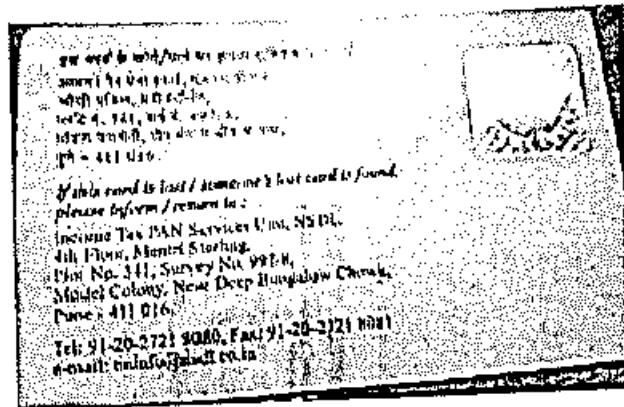 इस कार्ड के खोने/पाने पर
आयकर पैन सेवा इकाई,
मंजिल,
प्लॉट नं. 341, सर्वे नं.
मॉडल कालोनी, दीप बंगला चौक के पास,
पुणे - 411 016.
If this card is lost / someone's lost card is found,
please inform / return to :
Income Tax PAN Services Unit, NSDL
4th Floor, Mantri Sterling,
Plot No. 341, Survey No. 997/8,
Model Colony, Near Deep Bungalow Chowk,
Pune - 411 016.
Tel: 91-20-2721 8080, Fax: 91-20-2721 8081
e-mail: tininfo@nsdl.co.in